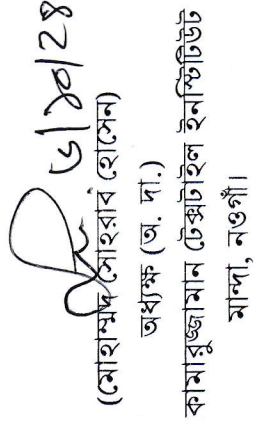 ৬/১০/২৪
(মোহাম্মদ সোহরাব হোসেন)
অধ্যক্ষ (অ. দা.)
কামারুজ্জামান টেক্সটাইল ইনস্টিটিউট
মান্দা, নওগাঁ।